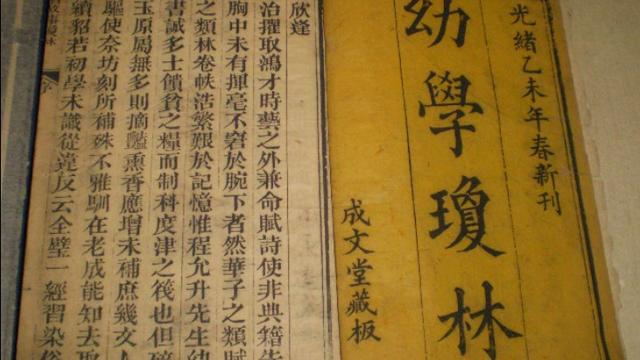 光緒乙未年春新刊
幼學瓊林
成文堂藏板
欣逢
治擢取鴻才時藝之外兼命賦詩使非典籍
胸中未有揮毫不窘於腕下者然華子之類賦
之類林卷帙浩繁艱於記憶惟程允升先生幼
書誠多士饋貧之糧而制科度津之筏也但碎
玉原屬無多則摘豔熏香應增未補庶幾文人
驅使奈坊刻所補殊不雅馴在老成能知去取
續貂若初學未識從違反云全璧一經習染俗